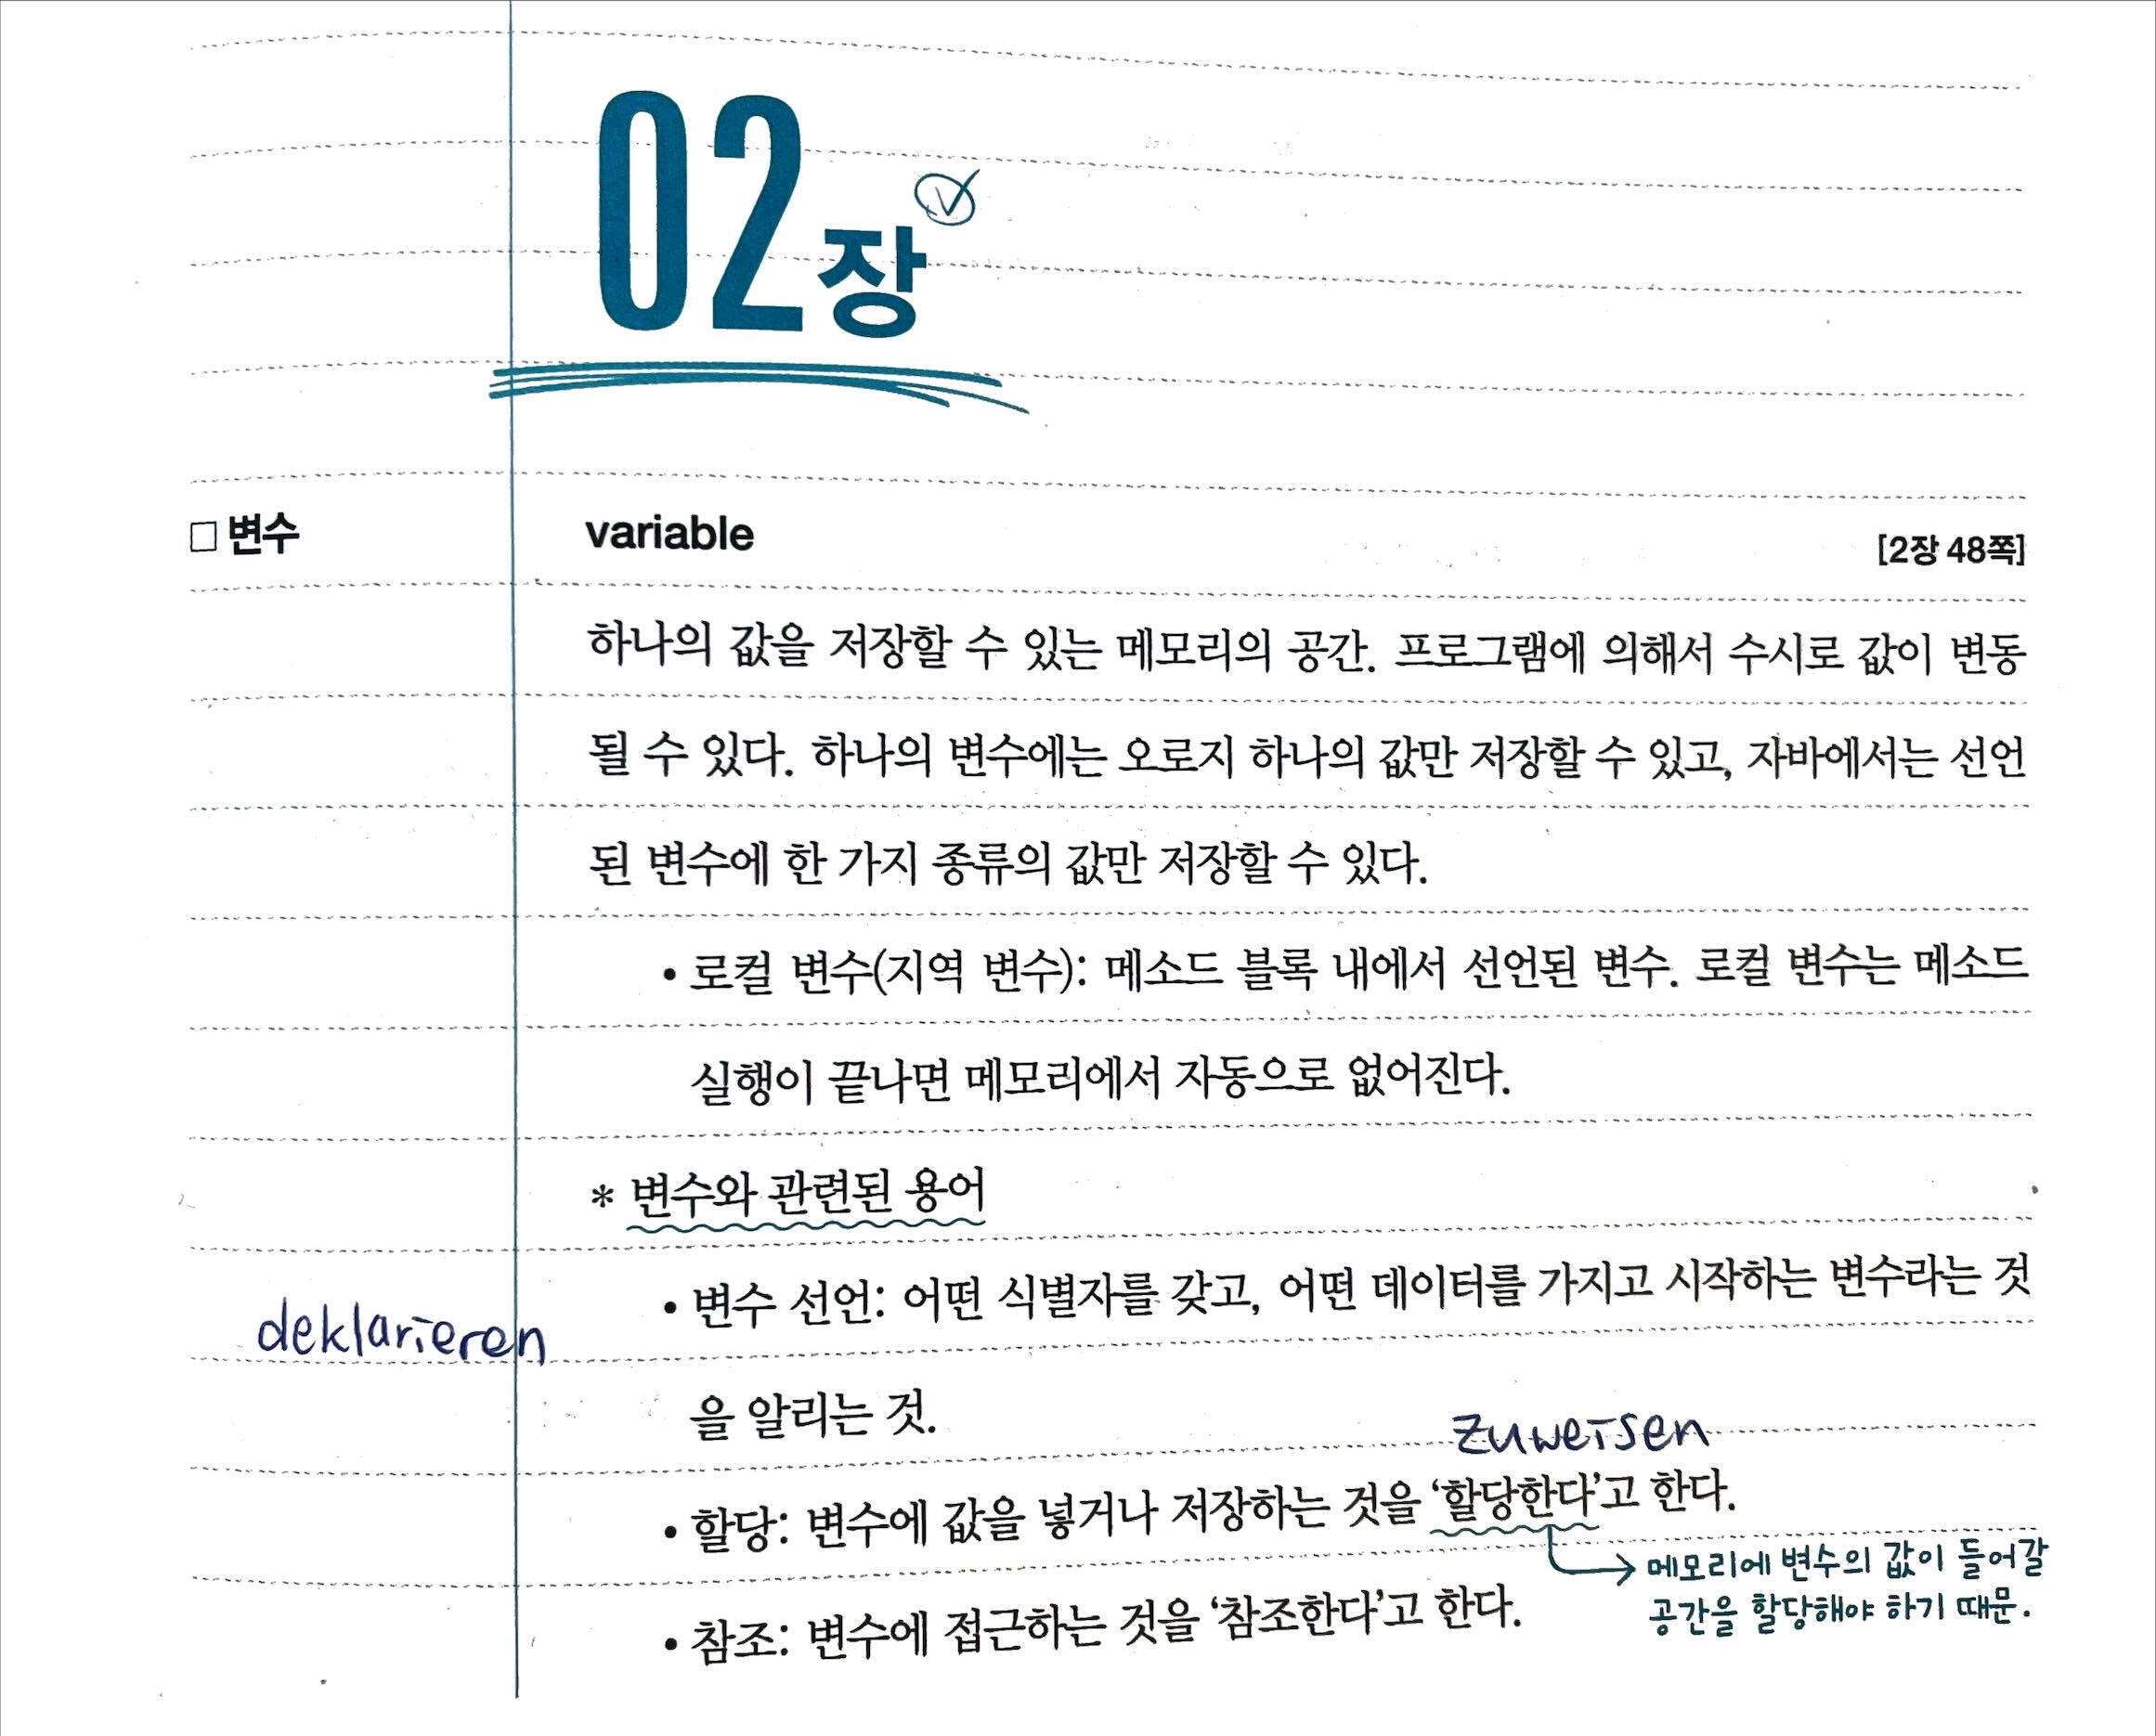 02장
□ 변수
variable
[2장 48쪽]
하나의 값을 저장할 수 있는 메모리의 공간. 프로그램에 의해서 수시로 값이 변동
될 수 있다. 하나의 변수에는 오로지 하나의 값만 저장할 수 있고, 자바에서는 선언
된 변수에 한 가지 종류의 값만 저장할 수 있다.
• 로컬 변수(지역 변수): 메소드 블록 내에서 선언된 변수. 로컬 변수는 메소드
실행이 끝나면 메모리에서 자동으로 없어진다.
* 변수와 관련된 용어
• 변수 선언: 어떤 식별자를 갖고, 어떤 데이터를 가지고 시작하는 변수라는 것
deklarieren
을 알리는 것.
zuweisen
• 할당: 변수에 값을 넣거나 저장하는 것을 ‘할당한다’고 한다.
→ 메모리에 변수의 값이 들어갈
공간을 할당해야 하기 때문.
• 참조: 변수에 접근하는 것을 ‘참조한다’고 한다.